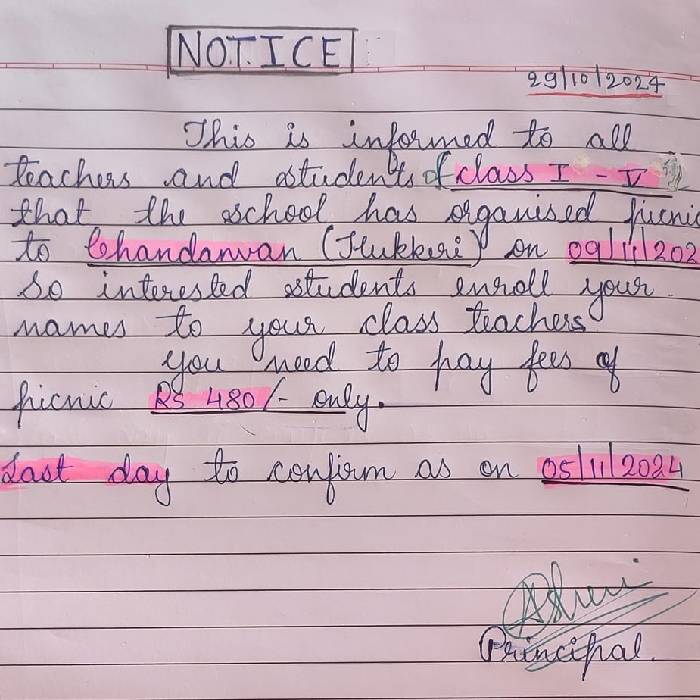 NOTICE
29/10/2024
This is informed to all
teachers and students of class I - V
that the school has organised picnic
to Chandanvan (Hukkeri) on 09/11/202
So interested students enroll your
names to your class teachers
you need to pay fees of
picnic Rs 480/- only.
Last day to confirm as on 05/11/2024
Principal.